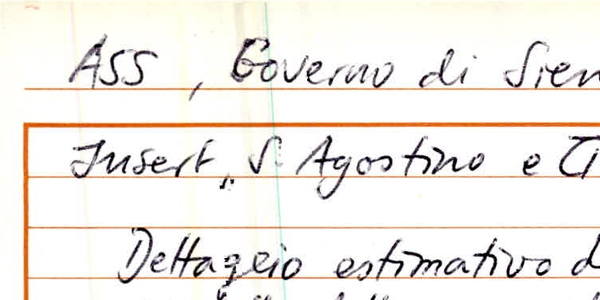 ASS, Governo di Sien
Insert „S. Agostino e
Dettaglio estimativo d